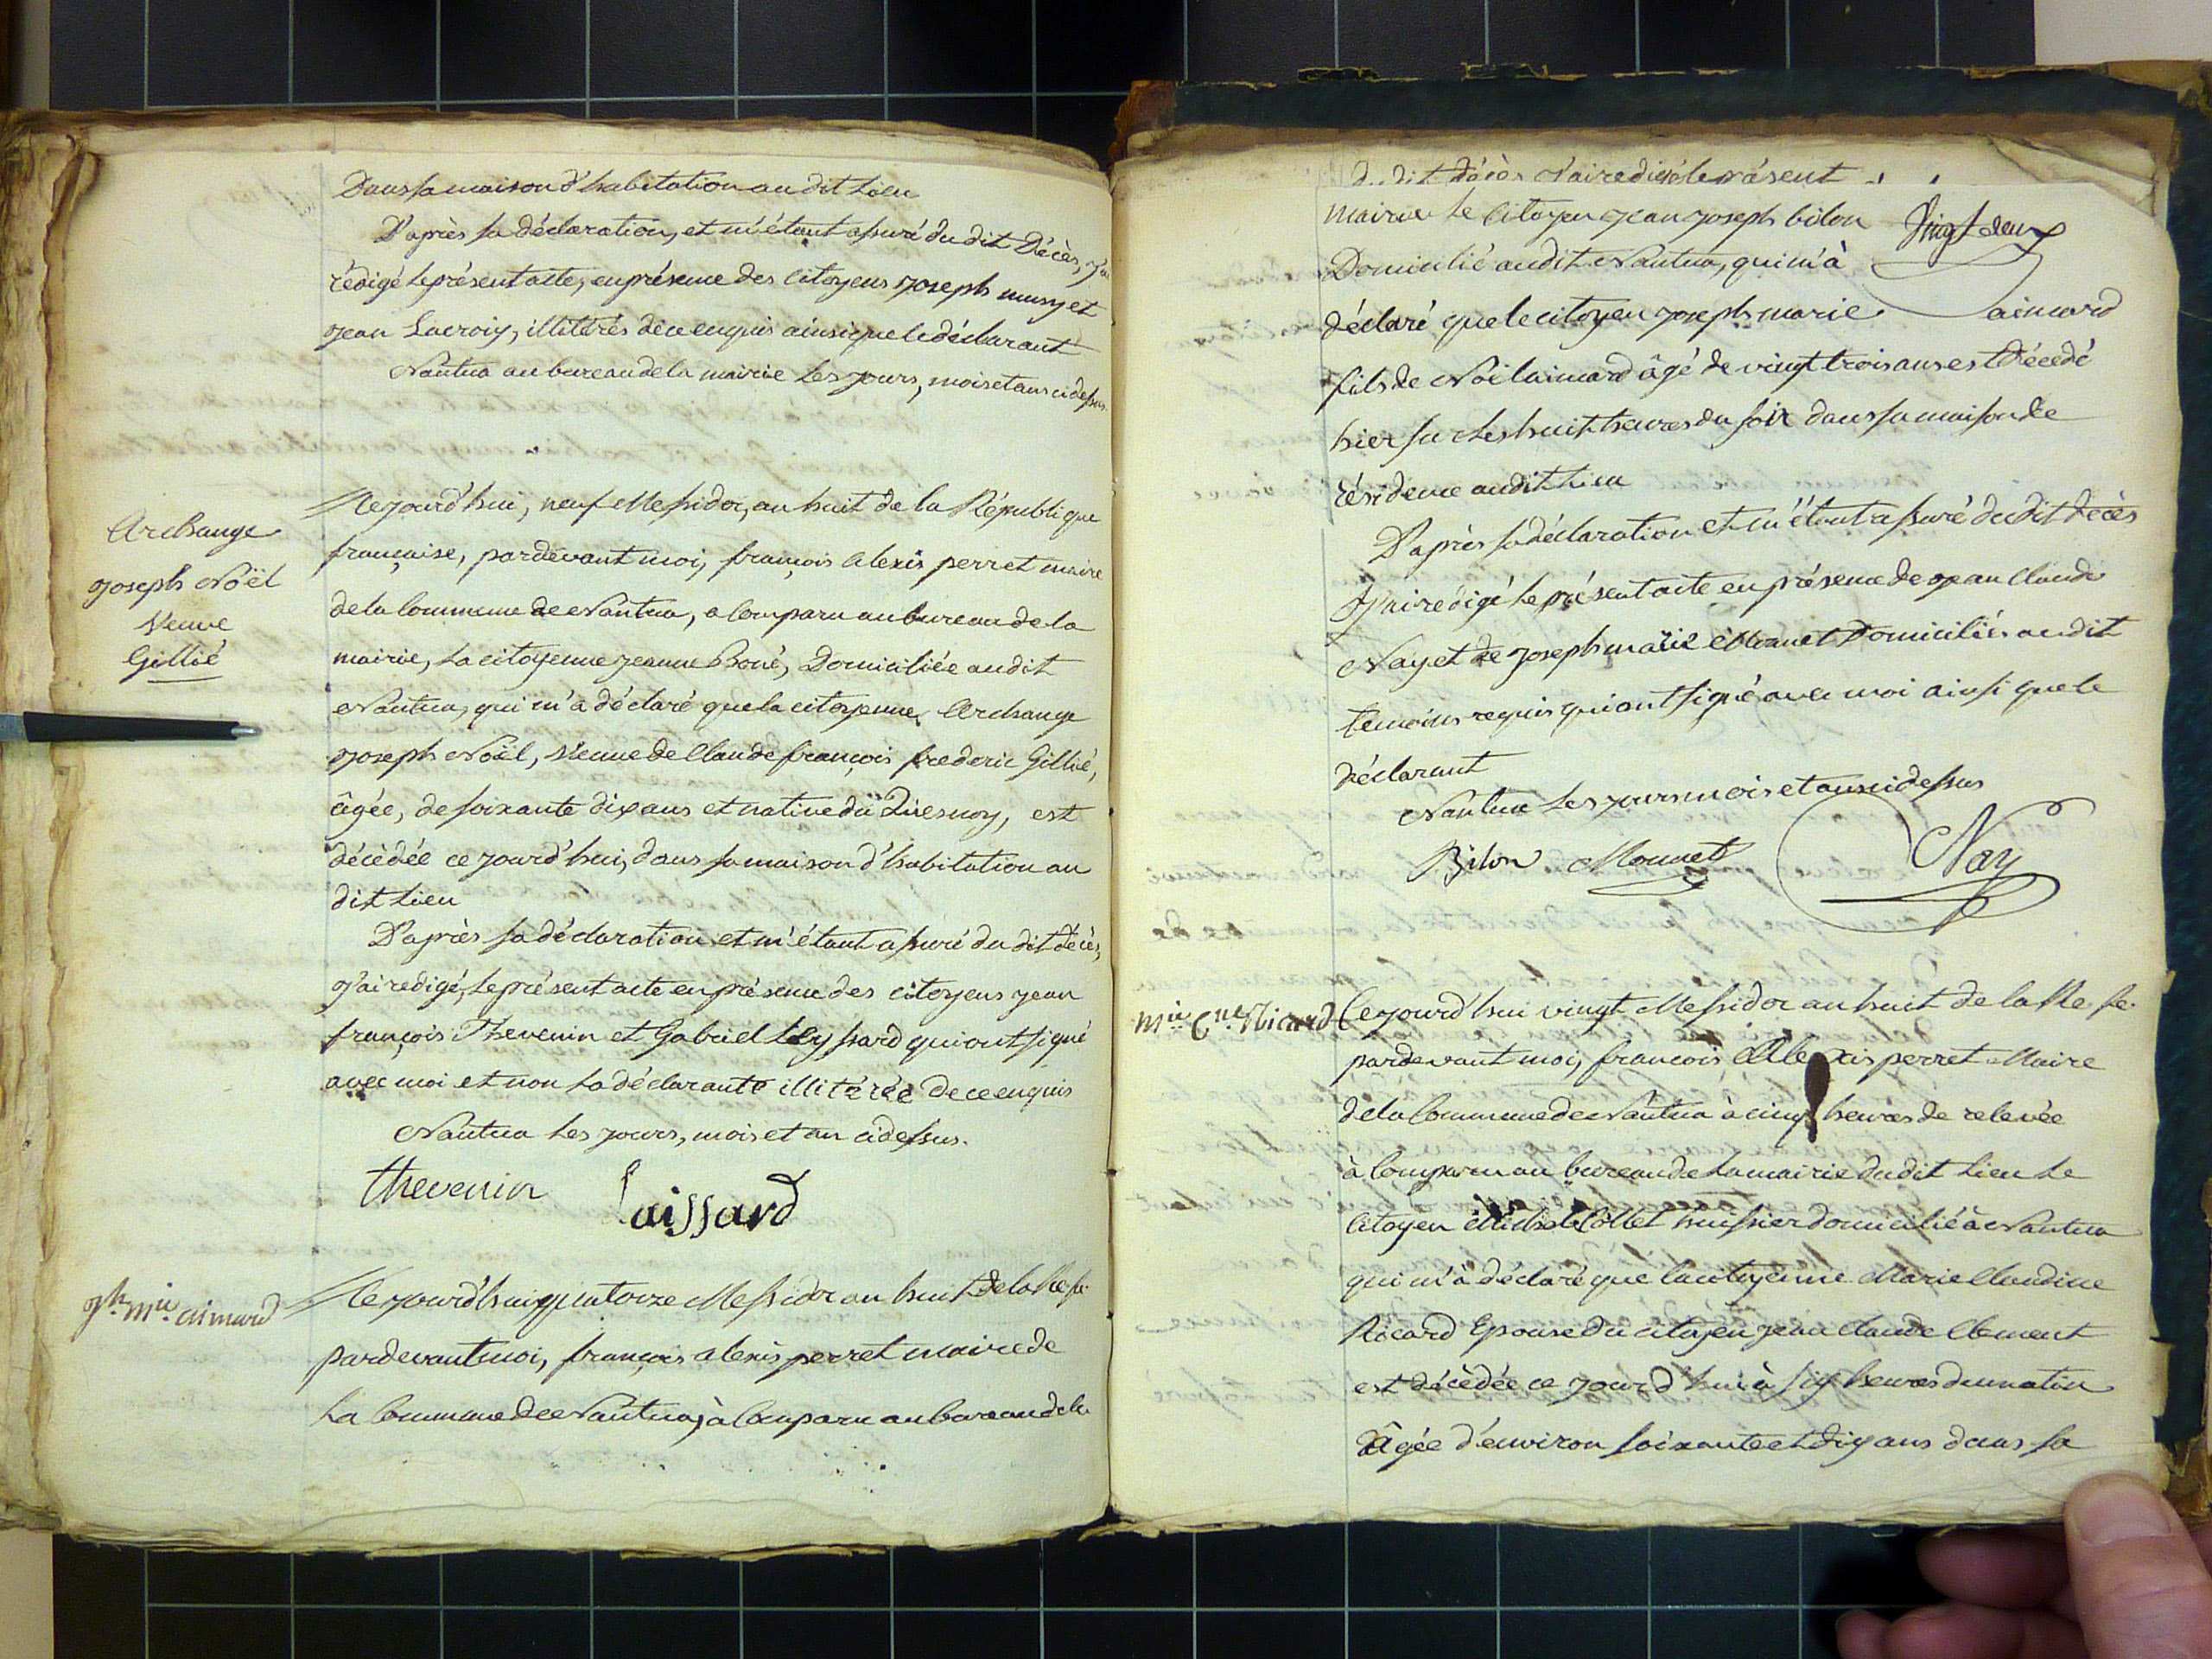 Dans sa maison d'habitation au dit Lieu
D'après sa déclaration, et m'étant assuré du dit Décès, j'ai
rédigé le présent acte, en présence des citoyens joseph musy et
jean Lacroix, illitérés de ce enquis ainsi que le déclarant
Nantua au bureau de la mairie Les jours, mois et an ci dessus.
Archange
joseph Noël
Veuve
Gillié
Cejourd'hui, neuf Messidor, an huit de la République
française, pardevant moi, françois alexis perret maire
de la Commune de Nantua, a Comparu au bureau de la
mairie, La citoyenne jeanne Boué, Domiciliée audit
Nantua, qui m'a déclaré que la citoyenne Archange
joseph Noël, Veuve de Claude françois frederic Gillié,
âgée, de soixante dix ans et native du Quesnoy, est
décèdée ce jourd'hui, dans sa maison d'habitation au
dit Lieu
D'après sa déclaration et m'étant assuré du dit décès,
j'ai redigé, le présent acte en présence des citoyens jean
françois Thevenin et Gabriel Leyssard qui ont signé
avec moi et non La déclarante illitérée de ce enquis
Nantua Les jours, mois et an ci dessus.
thevenin Laissard
jph mie aimard
Cejourd'hui quatorze Messidor an huit de la Re. fe.
pardevant moi, françois alexis perret maire de
La Commune de Nantua, à Comparu au bureau de la
du dit décès j'ai redigé le présent
mairie le Citoyen jean joseph bilon
Vingt deux
Domicilié audit Nantua, qui m'à
déclaré que le citoyen joseph marie aimard
fils de Noël aimard âgé de vingt trois ans est Décedé
hier sur Les huit heures du soir dans sa maison de
résidence audit Lieu
D'après sa déclaration et m'étant assuré du dit décès
J'ai redigé le présent acte en présence de jean Claude
Nay et de joseph marie Mounet Domiciliés audit
temoins requis qui ont signé avec moi ainsi que le
déclarant
Nantua Les jours mois et an ci dessus
Bilon Mounet Nay
Mie Cne Ricard
Cejourd'hui vingt Messidor an huit de la Re. fe.
pardevant moi, françois Alexis perret Maire
de la Commune de Nantua à cinq heures de relevée
à Comparu au bureau de La mairie dudit Lieu Le
Citoyen Michel Collet huissier domicilié à Nantua
qui m'à déclaré que la citoyenne Marie Claudine
Ricard Epouse du citoyen jean Claude Clement
est décèdée ce jourd'hui à six heures du matin
âgée d'environ soixante et dix ans dans sa